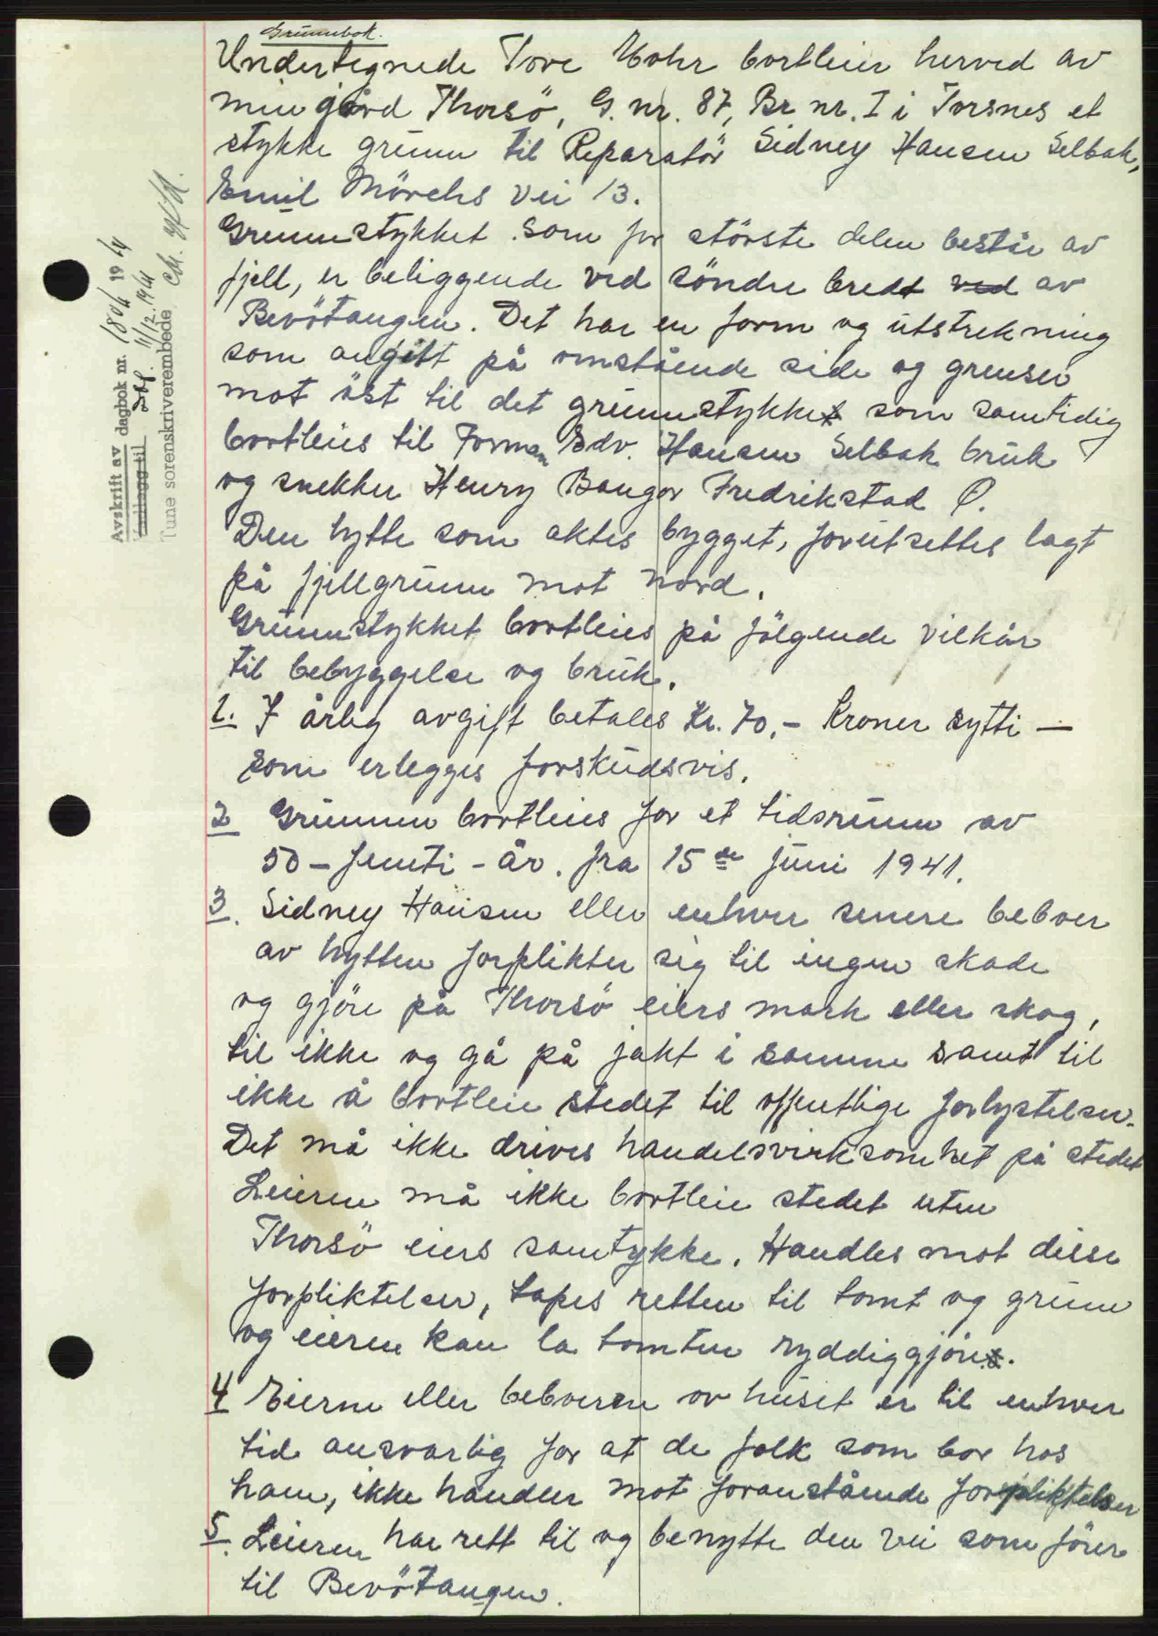 Grunnbok.
Undertegnede Tove Mohr bortleier herved av
min gård Thorsö, G. nr. 87, Br. nr. I i Torsnes et
stykke grunn til Reparatör Sidney Hansen Selbak,
Emil Mörchs vei 13.
Grunnstykket som for störste delen består av
fjell, er beliggende ved söndre bredt ved av
Bevötangen. Det har en form og utstrekning
som angitt på omstående side og grenser
mot öst til det grunnstykket som samtidig
bortleies til Forman Edv. Hansen Selbak bruk
og snekker Henry Bangor Fredrikstad Ö.
Den hytte som aktes bygget, forutsettes lagt
på fjellgrunn mot nord.
Grunnstykket bortleies på fölgende vilkår
til bebyggelse og bruk.
1. I årlig avgift betales Kr. 70.- Kroner sytti —
som erlegges forskudsvis.
2 Grunnen bortleies for et tidsrumm av
50 – femti – år. fra 15de juni 1941.
3. Sidney Hansen eller enhver senere beboer
av hytten forplikter sig til ingen skade
og gjöre på Thorsö eiers mark eller skog,
til ikke og gå på jakt i samme samt til
ikke å bortleie stedet til offentlige forlystelser.
Det må ikke drives handelsvirksomhet på stedet
Leieren må ikke bortleie stedet uten
Thorsö eiers samtykke. Handles mot disse
forpliktelser, tapes retten til tomt og grunn
og eieren kan la tomten ryddiggjöres.
4 Eieren eller beboeren av huset er til enhver
tid ansvarlig for at de folk som bor hos
ham, ikke handler mot foranstående forpliktelser
5. Leieren har rett til og benytte den vei som förer
til Bevötangen.
Avskrift av dagbok nr. 1806 1944
Vedlagg til 11/12 1944
Tune sorenskriverembede